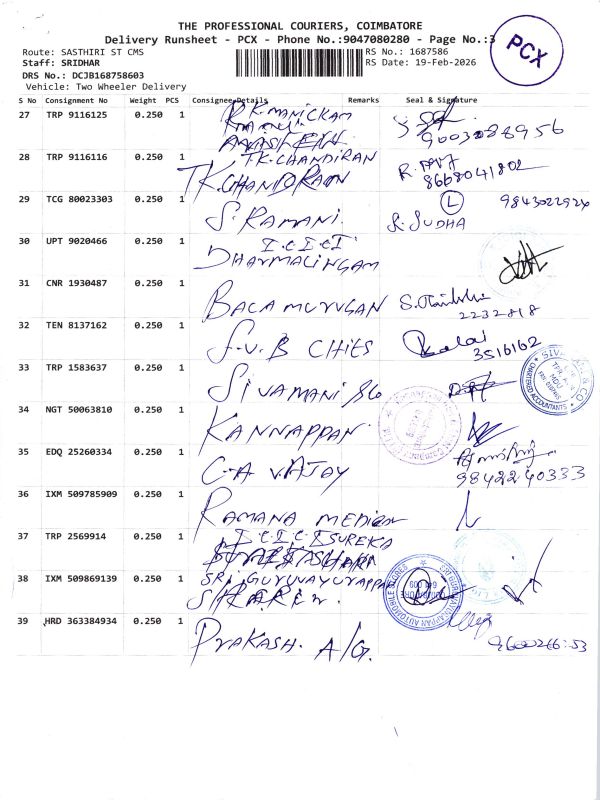 THE PROFESSIONAL COURIERS, COIMBATORE
Delivery Runsheet - PCX - Phone No.:9047080280 - Page No.:3
PCX
Route: SASTHIRI ST CMS
RS No.: 1687586
Staff: SRIDHAR
RS Date: 19-Feb-2026
DRS No.: DCJB168758603
Vehicle: Two Wheeler Delivery
S No Consignment No Weight PCS Consignee Details Remarks Seal & Signature
27 TRP 9116125 0.250 1 R.K. MANICKAM
9003288956
28 TRP 9116116 0.250 1 T.K. CHANDIRAN
T.K. CHANDRAN
8668041802
29 TCG 80023303 0.250 1 S. RAMANI. S. SUDHA L 9843022924
30 UPT 9020466 0.250 1 I.C.I.C.I.
DHARMALINGAM
31 CNR 1930487 0.250 1 BALAMURUGAN
2232818
32 TEN 8137162 0.250 1 S.V.B CHITS
3516162
33 TRP 1583637 0.250 1 SIVAMANI &Co
CHARTERED ACCOUNTANTS
34 NGT 50063810 0.250 1 KANNAPPAN
35 EDQ 25260334 0.250 1 C.A VIJAY
9842240333
36 IXM 509785909 0.250 1 RAMANA MEDICAL
37 TRP 2569914 0.250 1 I.C.I.C.I SUREKA
38 IXM 509869139 0.250 1 SRI GURUVAYURAPPAN
39 HRD 363384934 0.250 1 PRAKASH. A/G.